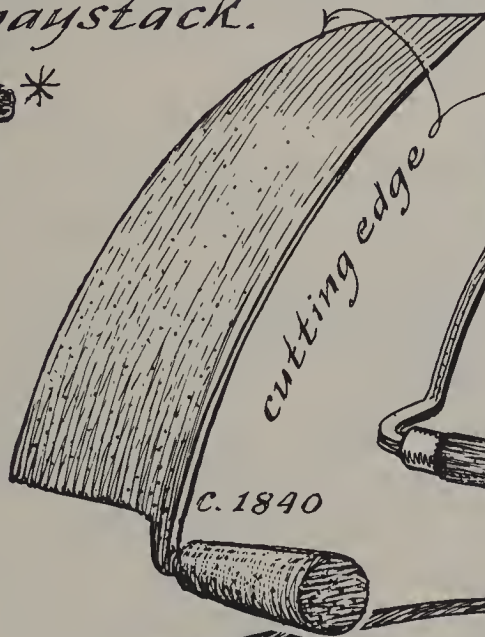 haystack.
*
cutting edge
c. 1840